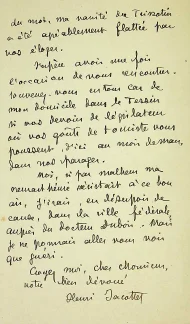 du mois, ma vanité de Trissotin
a été agréablement flattée par
vos éloges.
J'espère avoir une fois
l'occasion de vous rencontrer.
souvenez-vous en tous cas de
mon domicile dans le Tessin
si vos devoirs de législateur
où vos goûts de touriste vous
poussent, d'ici au mois de mars,
dans nos parages.
Moi, si par malheur ma
neurasthénie résistait à ce bon
air, j'irais, en désespoir de
cause, dans la ville fédérale,
auprès du docteur Dubois. Mais
je ne pourrais aller vous voir
que guéri.
Croyez moi, cher Monsieur,
votre bien dévoué
Henri Jacottet